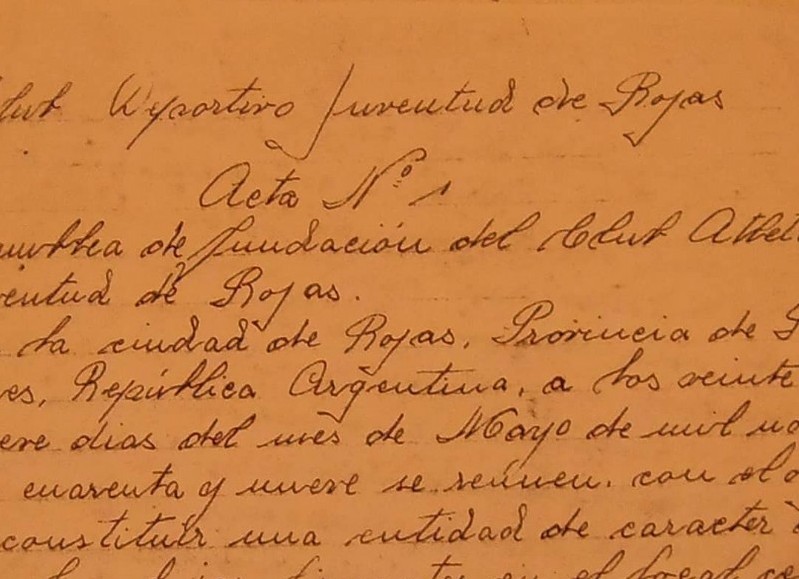 Club Deportivo Juventud de Rojas
Acta Nº 1
amblea de fundación del Club Atlet
ventud de Rojas.
la ciudad de Rojas, Provincia de
es, República Argentina, a los veinte
eve dias del mes de Mayo de mil no
cuarenta y nueve se reúnen, con el o
constituir una entidad de caracter
en el local